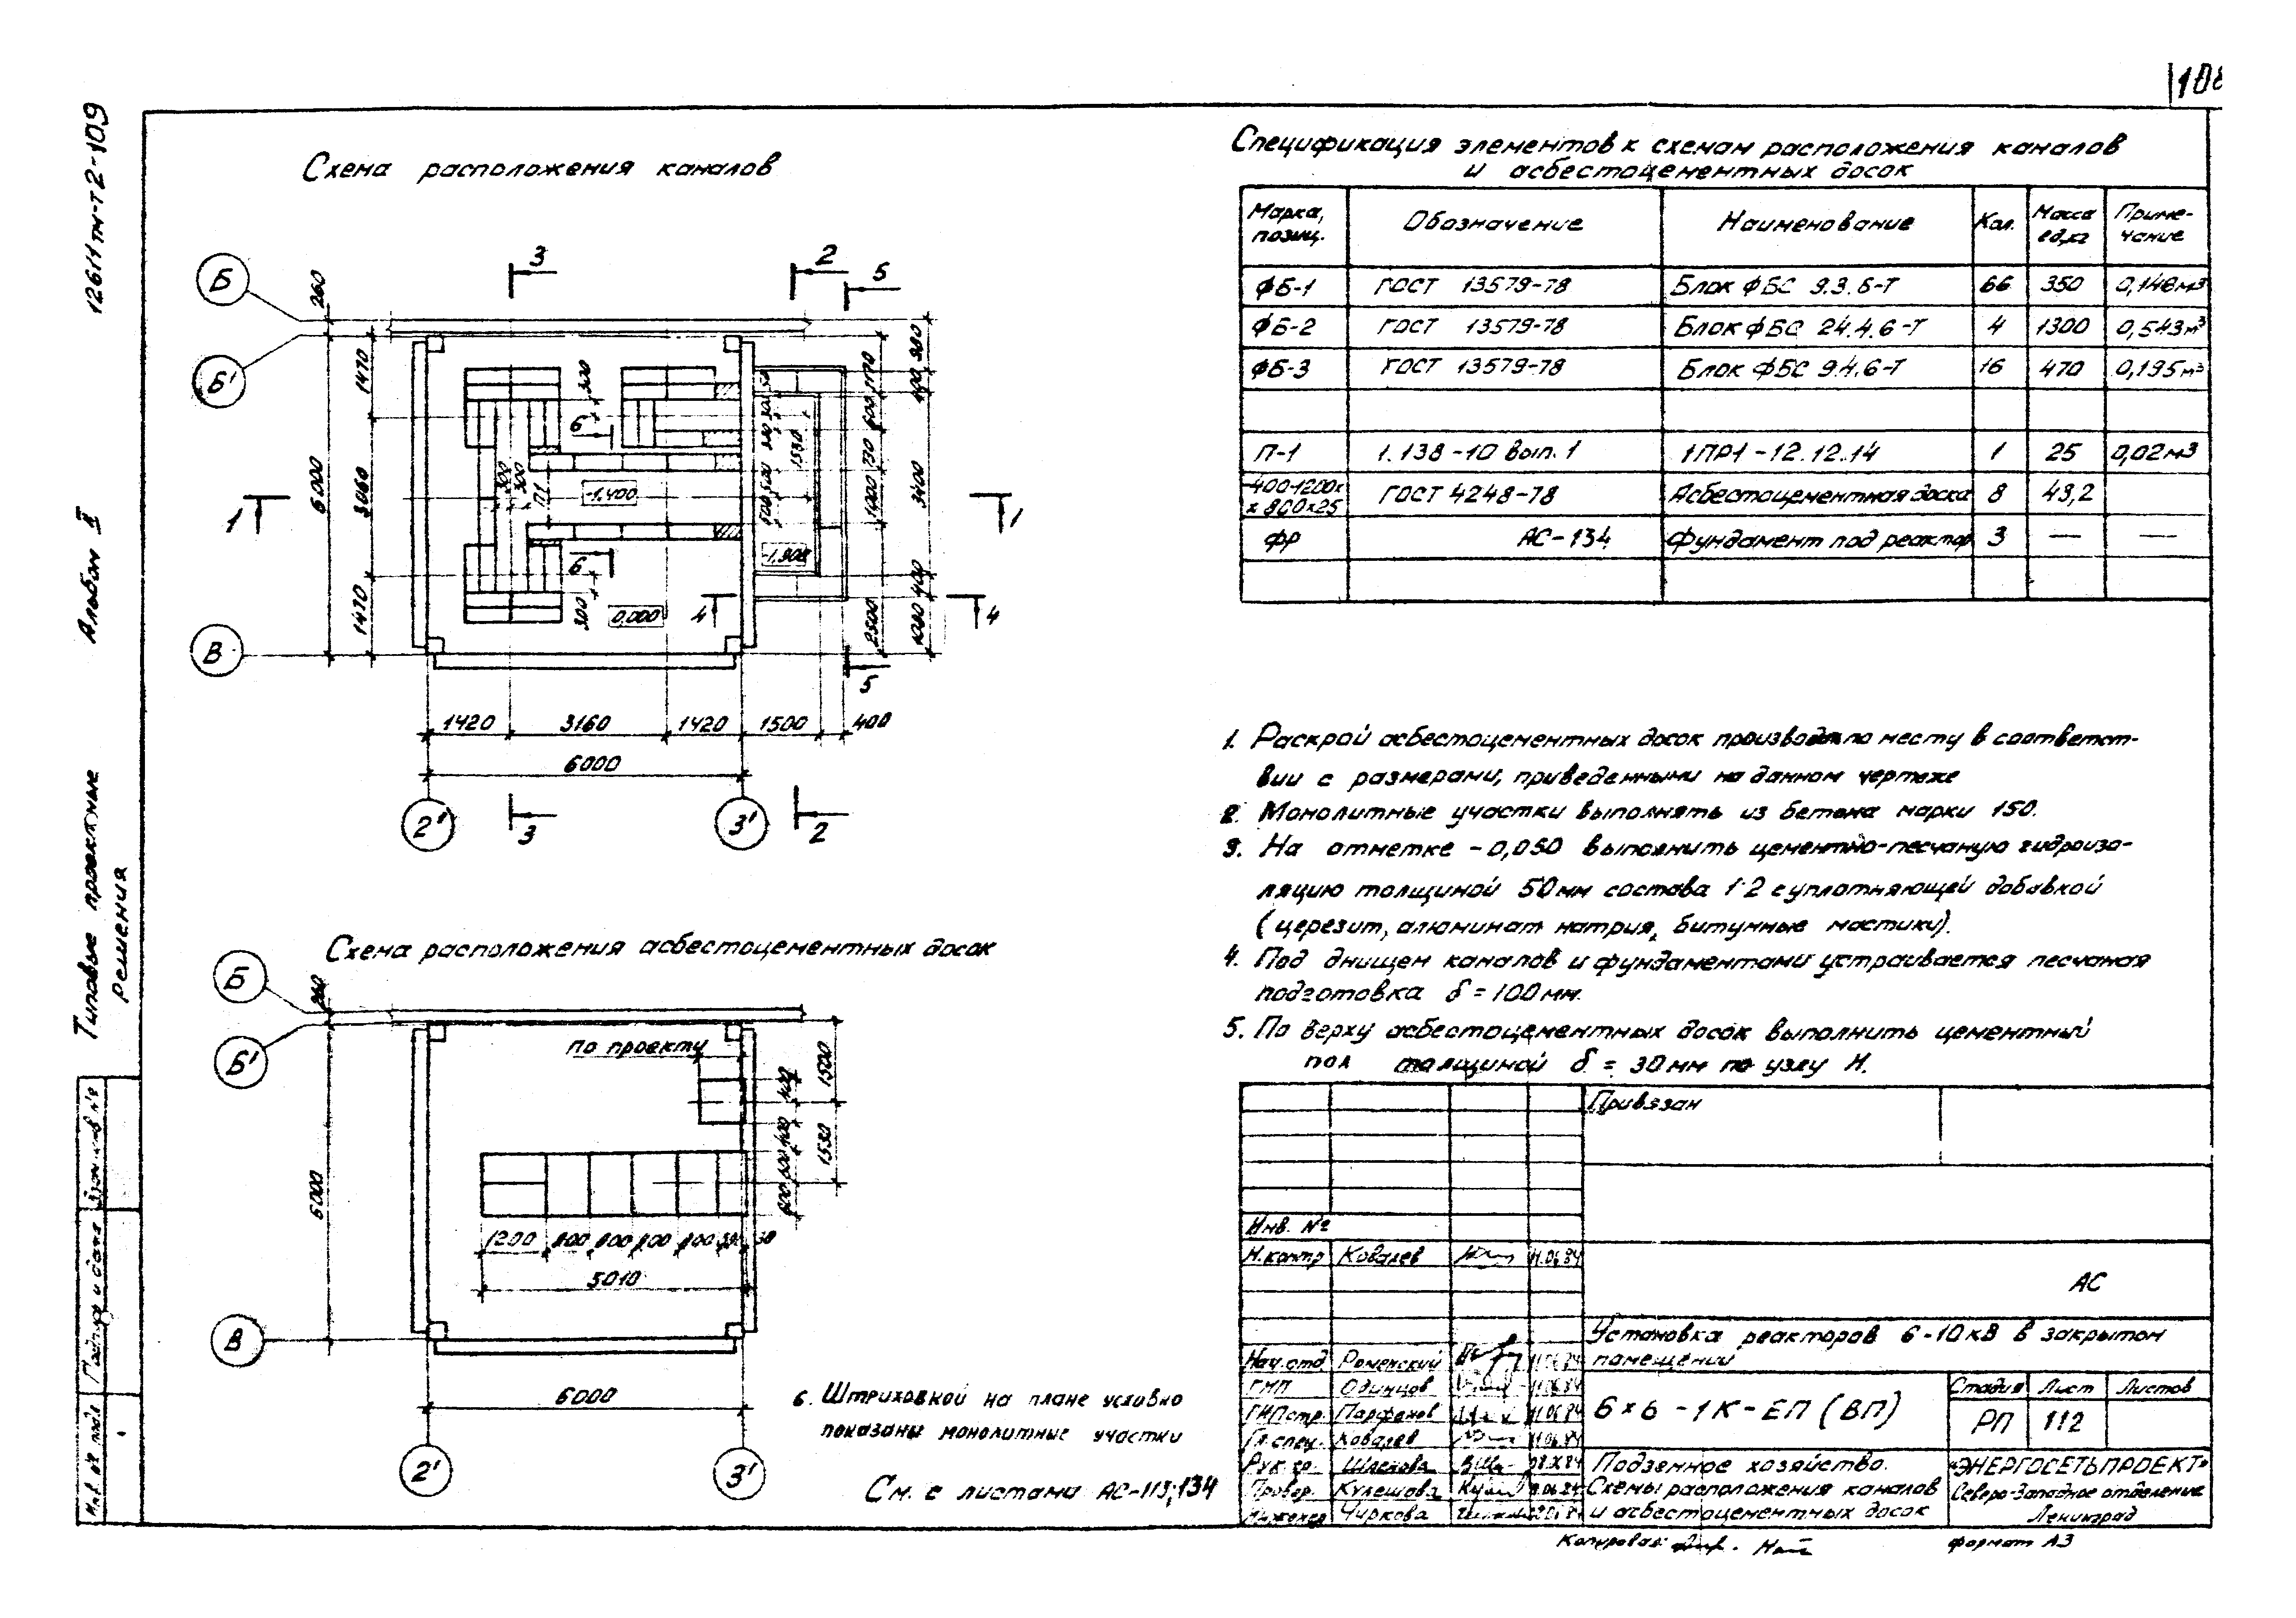 108
12611тм-т2-109
Альбом II
Типовые проектные
решения
Схема расположения каналов
Б
Б'
В
3
2
5
260
1470
3060
1470
6000
300
300
300
П1
-1.400
6
6
300
0,000
1530
-1.900
600
730
1000
2500
300
400
3400
400
1080
1
1
4
4
5
1420
3160
1420
1500
400
6000
2'
3
3'
2
Схема расположения асбестоцементных досок
Б
Б'
В
260
6000
по проекту
400
400
600
600
1500
1530
1200
800
800
800
800
30
5010
6000
2'
3'
6. Штриховкой на плане условно
показаны монолитные участки
См. с листами АС-113;134
Спецификация элементов к схемам расположения каналов
и асбестоцементных досок
Марка, позиц. Обозначение Наименование Кол. Масса ед,кг Приме-чание
ФБ-1 ГОСТ 13579-78 Блок ФБС 9.3.6-Т 66 350 0,146м3
ФБ-2 ГОСТ 13579-78 Блок ФБС 24.4.6-Т 4 1300 0,543м3
ФБ-3 ГОСТ 13579-78 Блок ФБС 9.4.6-Т 16 470 0,195м3
П-1 1.138-10 вып. 1 1ПР1-12.12.14 1 25 0,02м3
400-1200х х800х25 ГОСТ 4248-78 Асбестоцементная доска 8 43,2
ФР АС-134 Фундамент под реактор 3 — —
1. Раскрой асбестоцементных досок производ по месту в соответст-
вии с размерами, приведенными на данном чертеже
2. Монолитные участки выполнять из бетона марки 150.
3. На отметке -0,050 выполнить цементно-песчаную гидроизо-
ляцию толщиной 50мм состава 1:2 с уплотняющей добавкой
(церезит, алюминат натрия, битумные мастики).
4. Под днищем каналов и фундаментами устраивается песчаная
подготовка δ = 100мм.
5. По верху асбестоцементных досок выполнить цементный
пол толщиной δ = 30мм по узлу Н.
Привязан
Инв. №
Н.контр Ковалев 11.06.84
АС
Установка реакторов 6-10кВ в закрытом
помещении
Нач.отд Роменский 11.06.84
ГИП Одинцов 11.06.84
ГИПстр. Парфенов 11.06.84
Гл.спец. Ковалев 11.06.84
Рук.гр. Шленова
Провер. Кулешова
Инженер Чиркова
6×6-1К-ЕП (ВП)
Стадия Лист Листов
РП 112
Подземное хозяйство.
Схемы расположения каналов
и асбестоцементных досок
«ЭНЕРГОСЕТЬПРОЕКТ»
Северо-Западное отделение
Ленинград
Копировал:
формат А3
Инв. № подл.
Подпись и дата
Взам. инв №